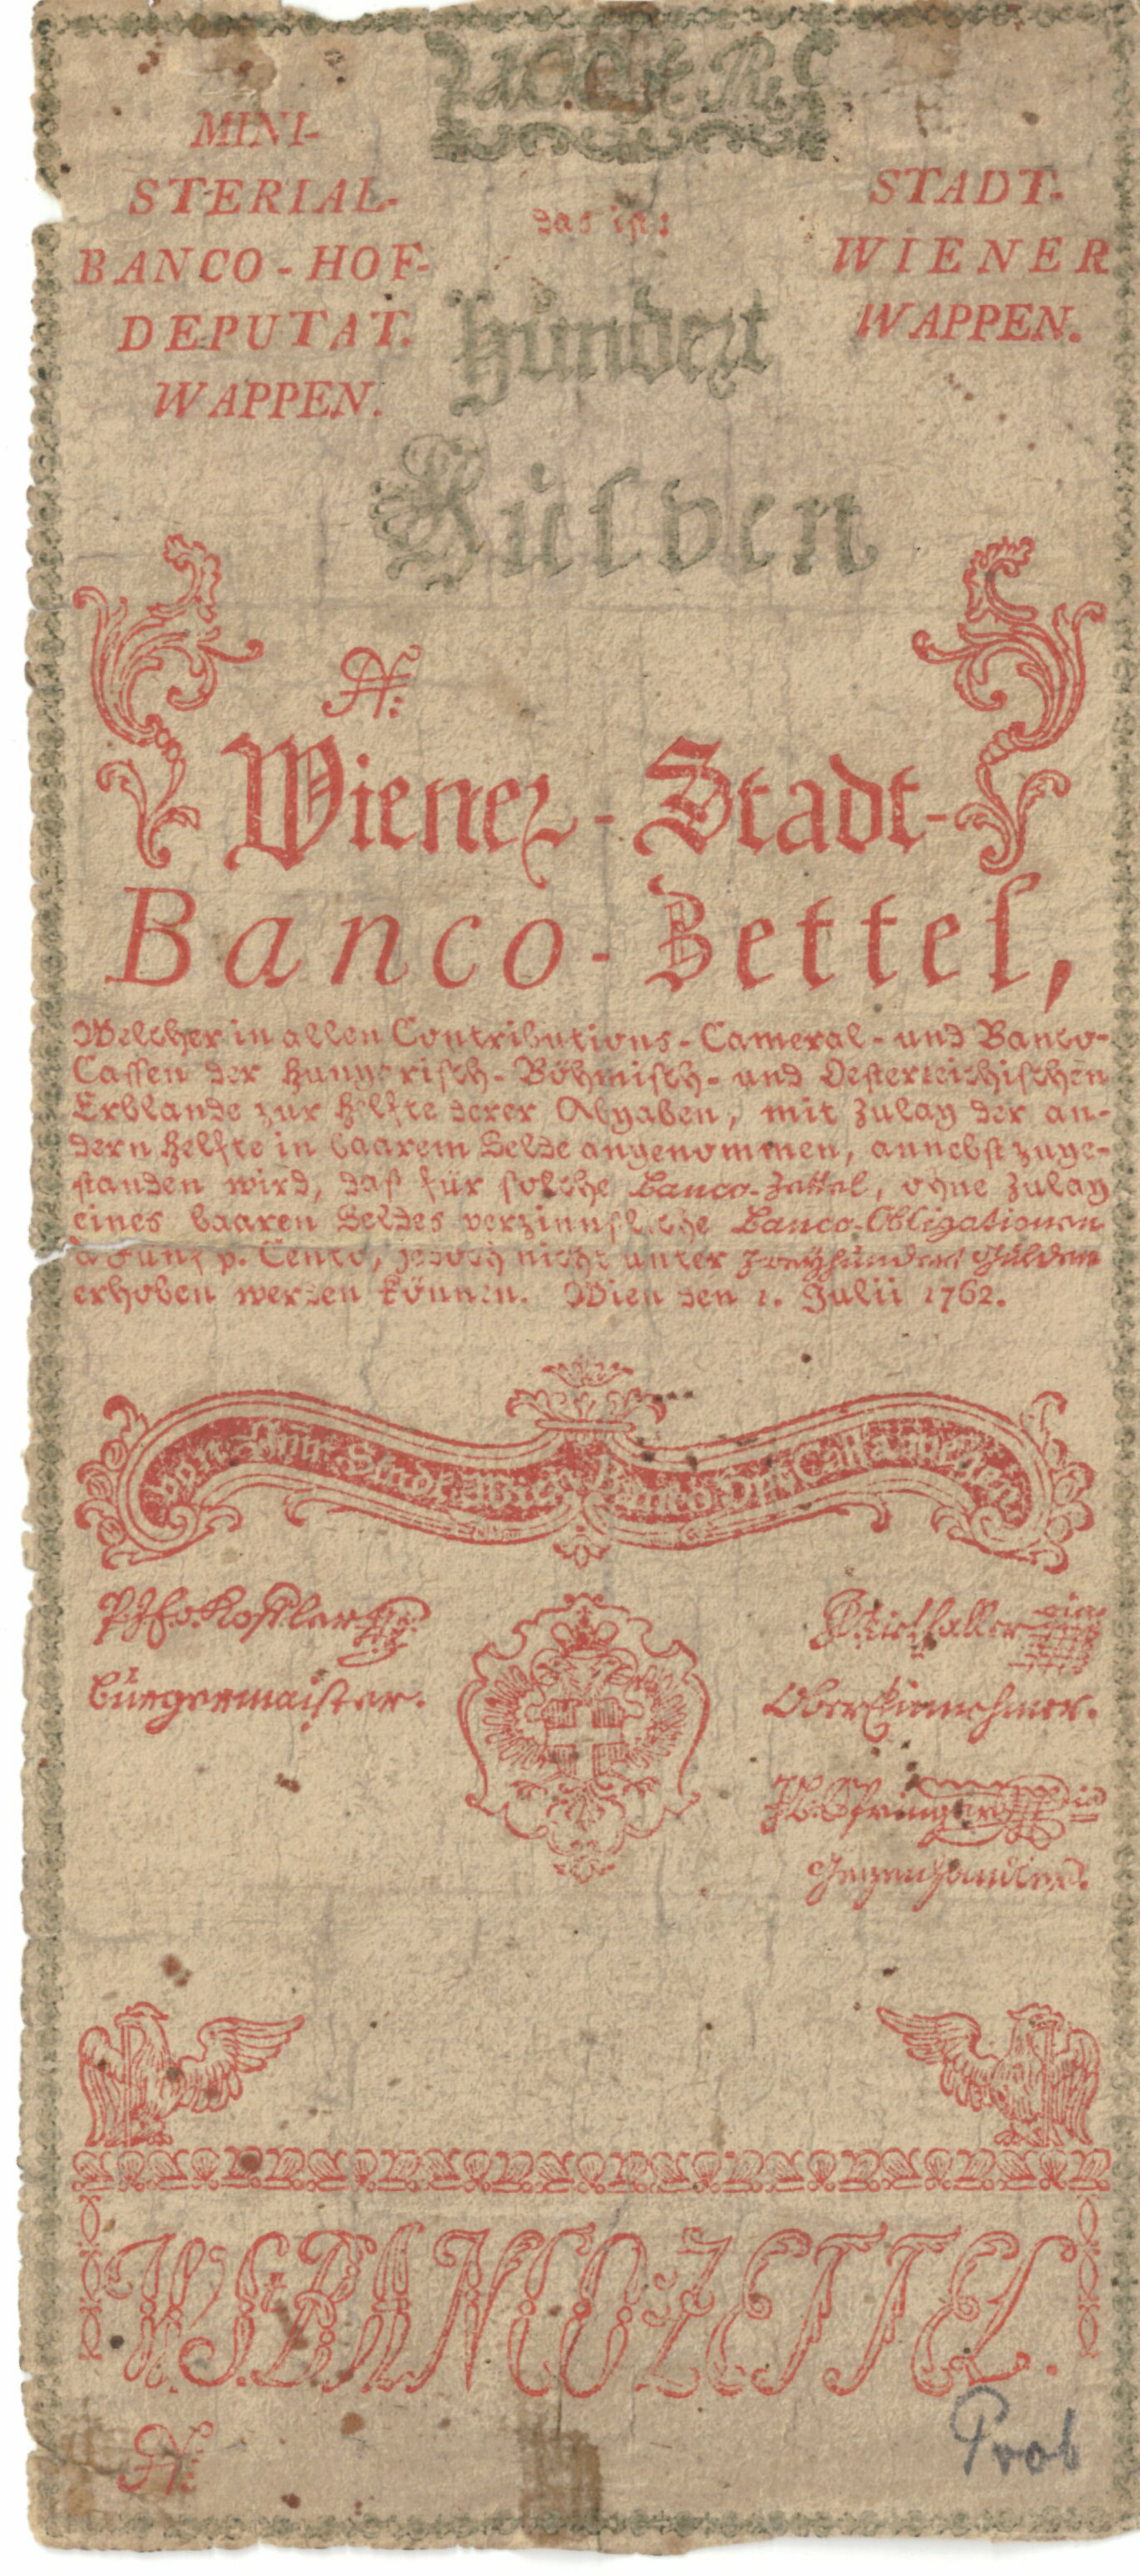 100
das ist:
MINI-
STERIAL-
BANCO-HOF-
DEPUTAT.
WAPPEN.
STADT-
WIENER
WAPPEN.
Hundert
Gulden
N:
Wiener-Stadt-
Banco-Zettel,
Welcher in allen Contributions-Cameral- und Banco-
Cassen der Hungerisch-Böhmisch- und Oesterreichischen
Erblande zur Helfte derer Abgaben, mit Zulag der an-
dern Helfte in baarem Gelde angenommen, annebst zuge-
standen wird, daß für solche Banco-Zettel, ohne Zulag
eines baaren Geldes verzinnßliche Banco-Obligationen
à Fünf p. Cento, jedoch nicht unter Zweyhundert Gulden
erhoben werden können. Wien den 1. Julii 1762.
Von Stadt Wien Banco Cassa wegen
Bürgermaister.
Ober Einnehmer.
Gegenhandler.
W. St. BANCO ZETTEL.
N:
Prob